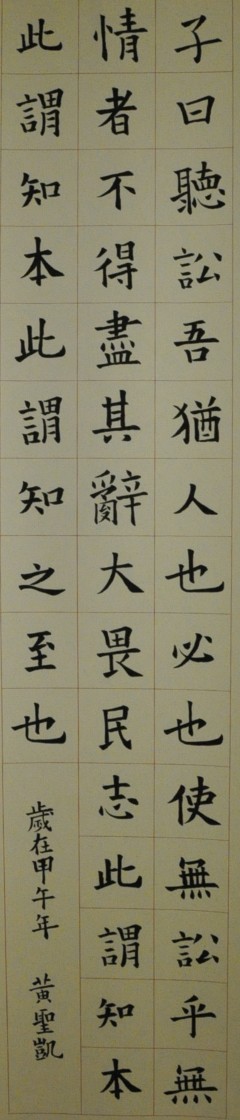 子曰聽訟吾猶人也必也使無訟乎無
情者不得盡其辭大畏民志此謂知本
此謂知本此謂知之至也
歲在甲午年 黃聖凱